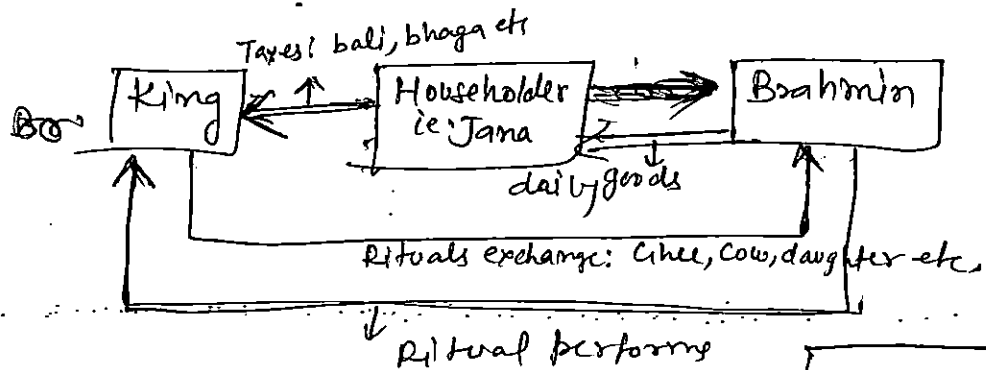 Taxes: bali, bhaga etc
King
Householder
ie: Jana
Brahmin
daily goods
Rituals exchange: Ghee, Cow, daughter etc.
Ritual performs